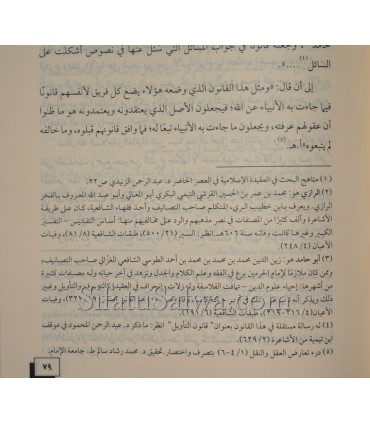 حامد (٣)، وجعله قانونًا في جواب المسائل التي سُئل عنها في نصوص أشكلت على
السائل(٤)....».
إلى أن قال: «ومثل هذا القانون الذي وضعه هؤلاء يضع كل فريق لأنفسهم قانونًا
فيما جاءت به الأنبياء عن الله؛ فيجعلون الأصل الذي يعتقدونه ويعتمدونه هو ما ظنوا
أن عقولهم عرفته، ويجعلون ما جاءت به الأنبياء تبعًا له؛ فما وافق قانونهم قبلوه، وما خالفه
لم يتبعوه»أ.هـ(٥)
(١) مناهج البحث في العقيدة الإسلامية في العصر الحاضر د. عبد الرحمن الزنيدي ص٢٢.
(٢) الرازي هو: محمد بن عمر بن الحسين القرشي التيمي البكري أبو المعالي وأبو عبد الله المعروف بالفخر
الرازي. ويعرف بابن خطيب الري، المتكلم صاحب التصانيف وأحد فقهاء الشافعية، كان على طريقة
الأشاعرة وألف كثيرًا من المصنفات في نصر مذهبهم والرد على مخالفيهم منها: أساس التقديس – التفسير
الكبير وغيرها كانت وفاته سنة ٦٠٦هـ. انظر: السير (٢١/ ٥٠٠)، طبقات الشافعية (٨/ ٨١)، وفيات
الأعيان (٤/ ٢٤٨)
(٣) أبو حامد هو: زين الدين محمد بن محمد بن محمد بن أحمد الطوسي الشافعي الغزالي صاحب التصانيف،
وممن كان ملازمًا لإمام الحرمين برع في الفقه وعلم الكلام والجدل وتزهد في آخر حياته وله مصنفات كثيرة
من أشهرها: إحياء علوم الدين – تهافت الفلاسفة وله زلات وانحراف في العقيدة
الأعيان (٤/ ٢١٦-٢١٩)، طبقات الشافعية (٦/
(٤) له رسالة مستقلة في هذا القانون بعنوان "قانون التأويل" انظر: ما ذكره د. عبد الرحمن المحمود في موقف
ابن تيمية من الأشاعرة (٢/ ٦٢٩).
(٥) درء تعارض العقل والنقل (١/ ٤-٦) بتصرف واختصار. تحقيق د. محمد رشاد سالم ط. جامعة الإمام.
٧٩
SifatuSafwa.com